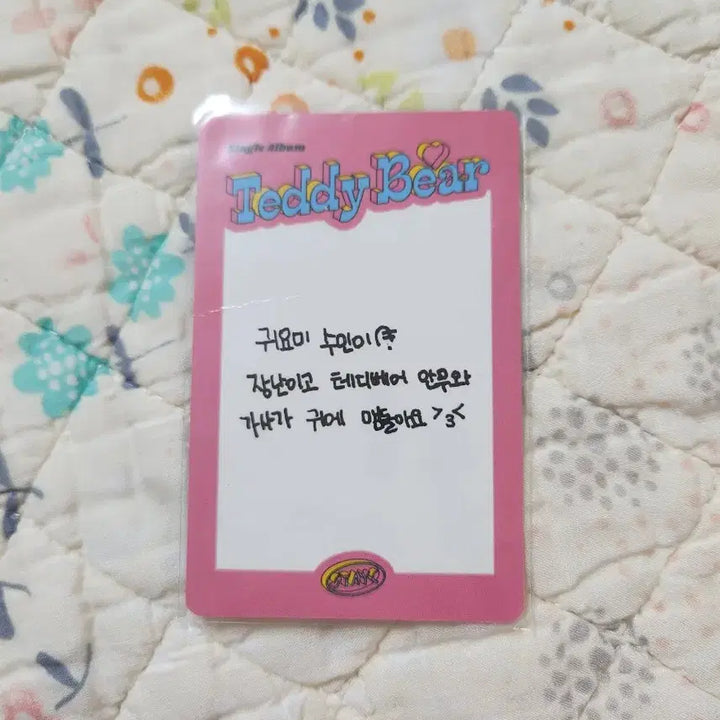 Single Album
Teddy Bear
귀요미 수민이
장난이고 테디베어 안무와
가사가 귀에 맴돌아요 >3<
STAYC